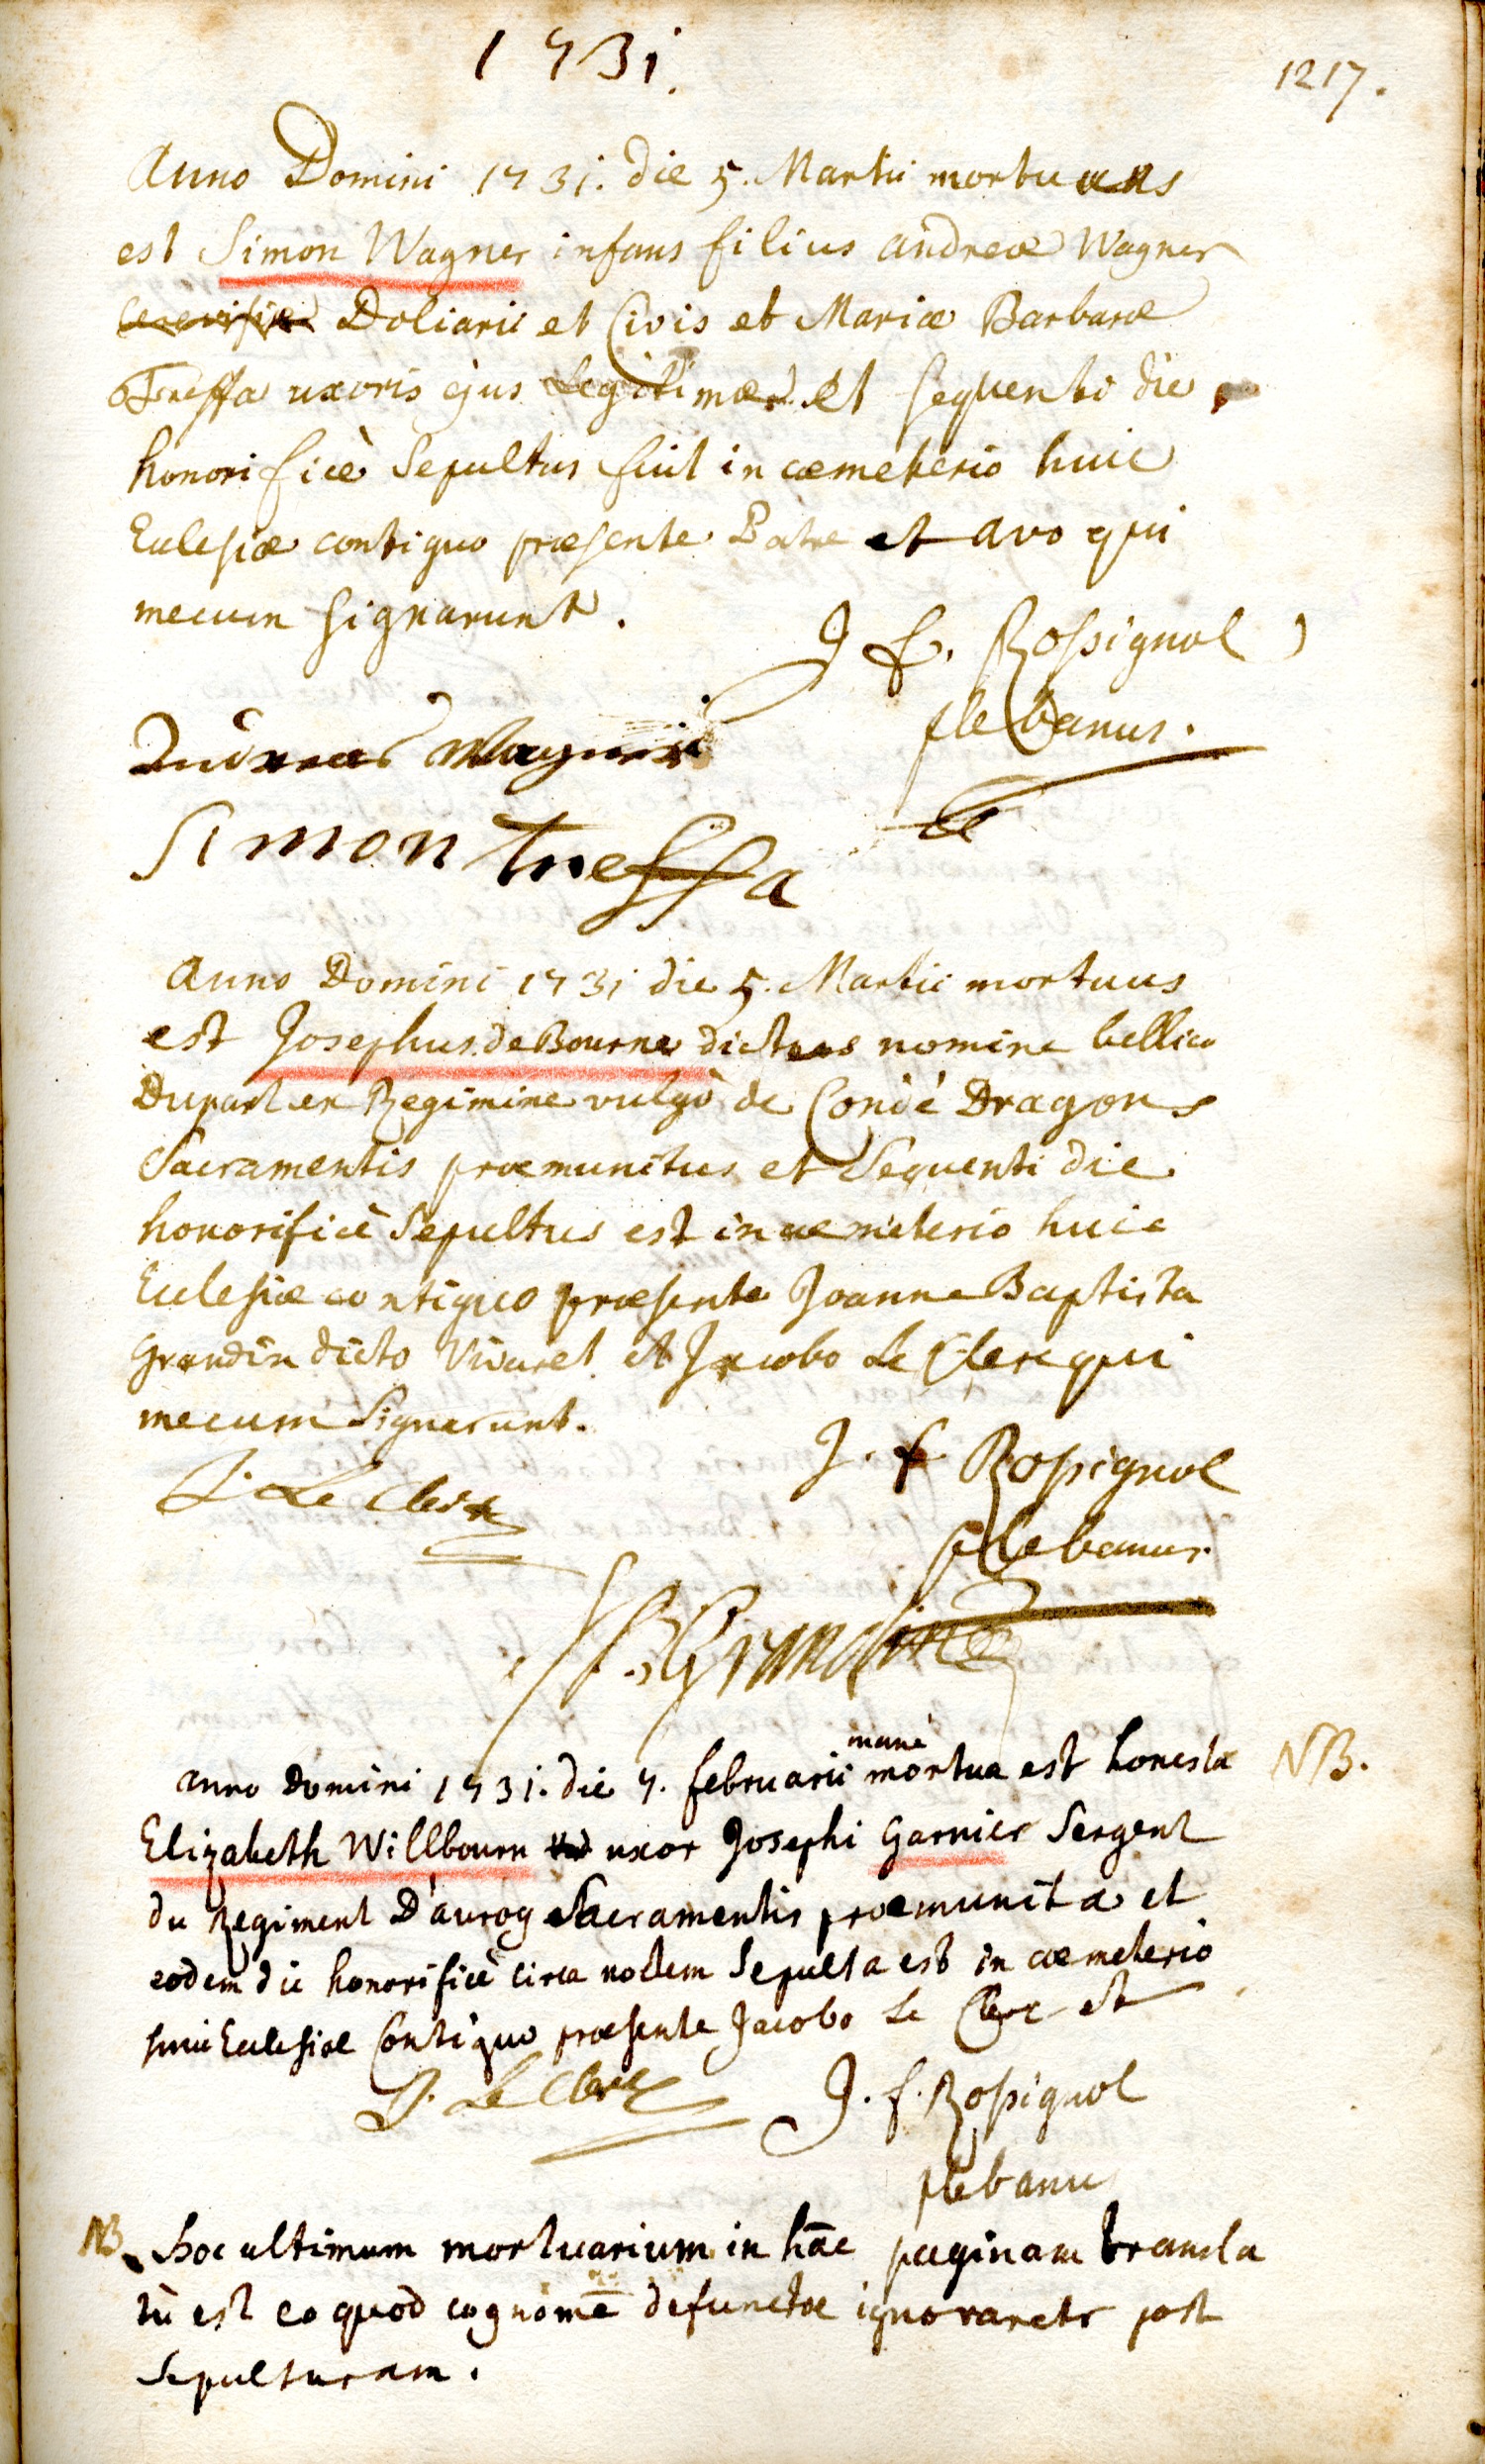 1731.
1217.
Anno Domini 1731. die 5. Martii mortuus
est Simon Wagner infans filius andreæ Wagner
Doliarii et Civis et Mariæ Barbaræ
Treffa uxoris ejus Legitimæ. et sequenti die
honorificè Sepultus fuit in cæmeterio huic
Eclesiæ contiguo præsente Patre et avo qui
mecum signarunt.
J f. Rosignol
plebanus.
Andreas Wagner
Simon treffa
Anno Domini 1731 die 5. Martii mortuus
est Josephus de Bourne dictus nomine bellico
Dupart ex Regimine vulgò de Condé Dragons
Sacramentis præmunitus et Sequenti die
honorificè Sepultus est in cæmeterio huic
Eclesiæ contiguo præsente Joanne Baptista
Grandin dicto Vivaret et Jacobo Le Clerc qui
mecum Signarunt.
J. f Rosignol
J. Le Clerc
plebanus.
J B Grandin
NB.
manè
anno Domini 1731. die 7. februarii mortua est honesta
Elizabeth Willbourn uxor Josephi Garnier Sergent
du Regiment D'auroy Sacramentis præmunita et
eodem die honorificè circa noctem Sepulta est in cæmeterio
huic Eclesiæ Contiguo præsente Jacobo Le Clerc et
J. Le Clerc J. f. Rosignol
plebanus
NB. hoc ultimum mortuarium in hāc paginam transla
tū est eo quod cognomē defunctæ ignoraretr post
Sepulturam.